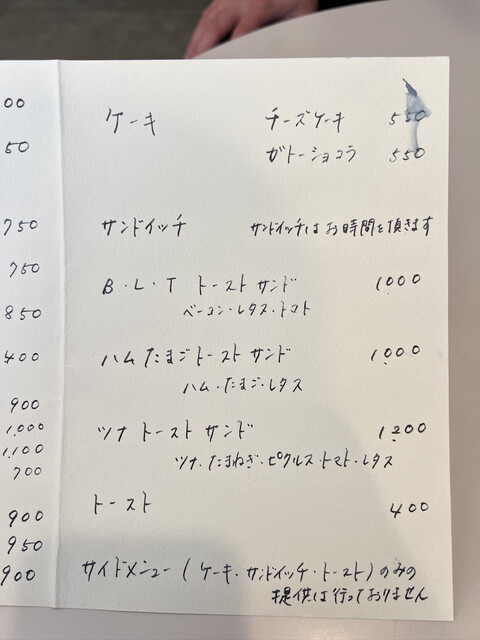 00
50
750
750
850
400
900
1,000
1,100
700
900
950
900
ケーキ
チーズケーキ 550
ガトーショコラ 550
サンドイッチ サンドイッチはお時間を頂きます
B・L・T トースト サンド 1,000
ベーコン・レタス・トマト
ハムたまごトースト サンド 1,000
ハム・たまご・レタス
ツナ トースト サンド 1,200
ツナ・たまねぎ・ピクルス・トマト・レタス
トースト 400
サイドメニュー ( ケーキ・サンドイッチ・トースト) のみの
提供は行っておりません